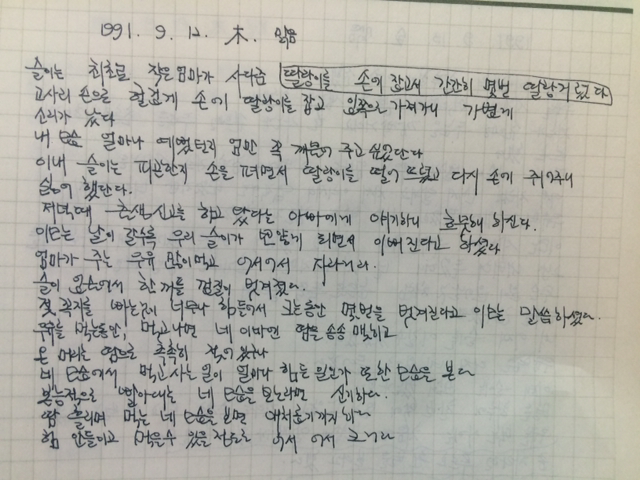 1991. 9. 12. 木. 맑음
슬이는 최초로 작은엄마가 사다준 딸랑이를 손에 잡고서 간간히 몇번 딸랑거렸다
고사리 손으로 힘겹게 손에 딸랑이를 잡고 입쪽으로 가져가니 가볍게
소리가 났다
네 모습 얼마나 예뻤던지 엄만 꼭 깨물어 주고 싶었단다
이내 슬이는 피곤한지 손을 펴면서 딸랑이를 떨어 뜨렸고 다시 손에 쥐어주니
싫어 했단다.
저녁때 출생신고를 하고 왔다는 아빠에게 얘기하니 흐뭇해 하신다.
이모는 날이 갈수록 우리 슬이가 뽀얗게 되면서 이뻐진다고 하셨다
엄마가 주는 우유 많이먹고 어서어서 자라거라.
슬이 입술에서 한 꺼풀 껍질이 벗겨졌다.
젖 꼭지를 빠는것이 너무나 힘들어서 크는동안 몇번을 벗겨진다고 이모는 말씀하셨다.
우유를 먹는동안, 먹고나면 네 이마엔 땀을 송송 맺히고
온 머리는 땀으로 촉촉히 젖어 있구나
네 모습에서 먹고 사는 일이 얼마나 힘든 일인가 또한 모습을 본다
본능적으로 빨아대는 네 모습을 보노라면 신기하다.
땀 흘리며 먹는 네 모습을 보면 애처롭기까지하다
힘 안들이고 먹을수 있을 정도로 어서 어서 크거라